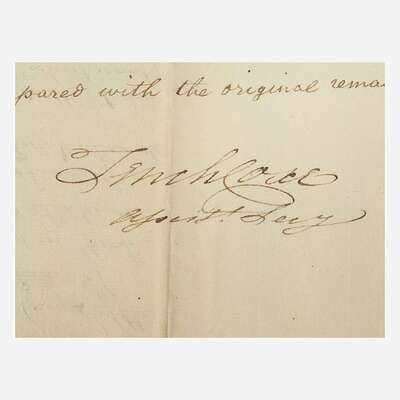 pared with the original rema
Tench Coxe
Assist. Secy